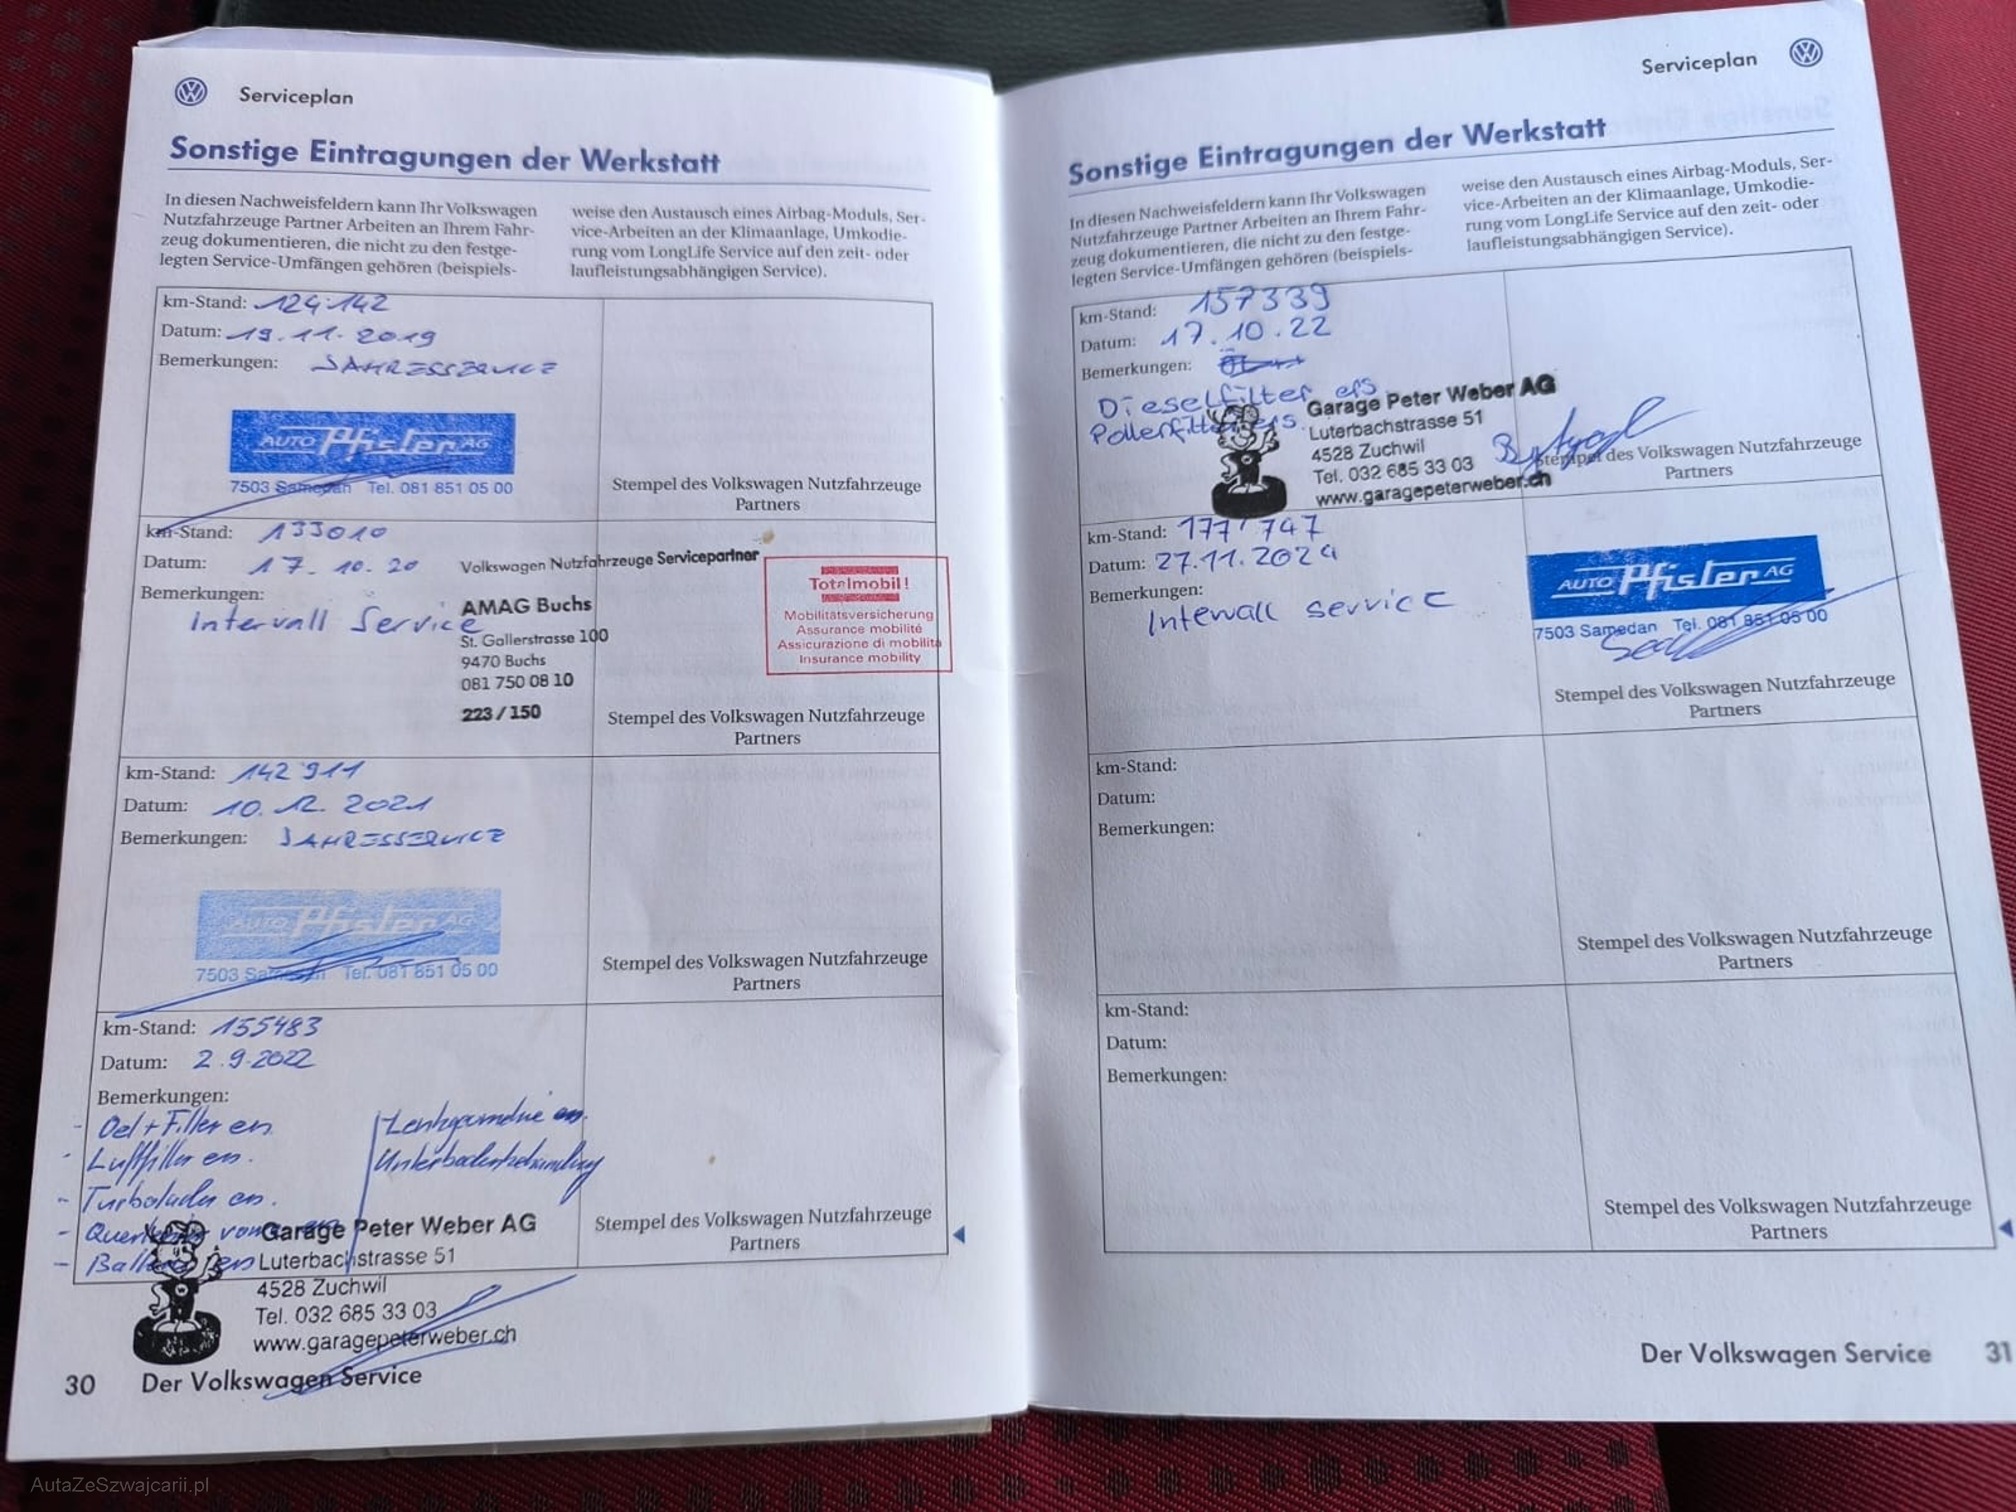 Serviceplan
Sonstige Eintragungen der Werkstatt
In diesen Nachweisfeldern kann Ihr Volkswagen
Nutzfahrzeuge Partner Arbeiten an Ihrem Fahr-
zeug dokumentieren, die nicht zu den festge-
legten Service-Umfängen gehören (beispiels-
weise den Austausch eines Airbag-Moduls, Ser-
vice-Arbeiten an der Klimaanlage, Umkodie-
rung vom LongLife Service auf den zeit- oder
laufleistungsabhängigen Service).
km-Stand: 124.142
Datum: 19.11.2019
Bemerkungen: JAHRESSERVICE
AUTO Pfister AG
7503 Samedan Tel. 081 851 05 00
Stempel des Volkswagen Nutzfahrzeuge
Partners
km-Stand: 133010
Datum: 17.10.20
Bemerkungen:
Intervall Service
Volkswagen Nutzfahrzeuge Servicepartner
AMAG Buchs
St. Gallerstrasse 100
9470 Buchs
081 750 08 10
223 / 150
Totalmobil!
Mobilitätsversicherung
Assurance mobilité
Assicurazione di mobilità
Insurance mobility
Stempel des Volkswagen Nutzfahrzeuge
Partners
km-Stand: 142'911
Datum: 10.12.2021
Bemerkungen: JAHRESSERVICE
AUTO Pfister AG
7503 Samedan Tel. 081 851 05 00
Stempel des Volkswagen Nutzfahrzeuge
Partners
km-Stand: 155483
Datum: 2.9.2022
Bemerkungen:
- Oel + Filter en
- Luftfilter en.
- Turbolader en.
Unterbodenbehandlung
Garage Peter Weber AG
Luterbachstrasse 51
4528 Zuchwil
Tel. 032 685 33 03
www.garagepeterweber.ch
Stempel des Volkswagen Nutzfahrzeuge
Partners
30 Der Volkswagen Service
Serviceplan
Sonstige Eintragungen der Werkstatt
In diesen Nachweisfeldern kann Ihr Volkswagen
Nutzfahrzeuge Partner Arbeiten an Ihrem Fahr-
zeug dokumentieren, die nicht zu den festge-
legten Service-Umfängen gehören (beispiels-
weise den Austausch eines Airbag-Moduls, Ser-
vice-Arbeiten an der Klimaanlage, Umkodie-
rung vom LongLife Service auf den zeit- oder
laufleistungsabhängigen Service).
km-Stand: 157339
Datum: 17.10.22
Bemerkungen:
Dieselfilter ers
Pollenfilter ers.
Garage Peter Weber AG
Luterbachstrasse 51
4528 Zuchwil
Tel. 032 685 33 03
www.garagepeterweber.ch
Stempel des Volkswagen Nutzfahrzeuge
Partners
km-Stand: 177'747
Datum: 27.11.2024
Bemerkungen:
Intervall service
AUTO Pfister AG
7503 Samedan Tel. 081 851 05 00
Stempel des Volkswagen Nutzfahrzeuge
Partners
km-Stand:
Datum:
Bemerkungen:
Stempel des Volkswagen Nutzfahrzeuge
Partners
km-Stand:
Datum:
Bemerkungen:
Stempel des Volkswagen Nutzfahrzeuge
Partners
Der Volkswagen Service 31
AutaZeSzwajcarii.pl